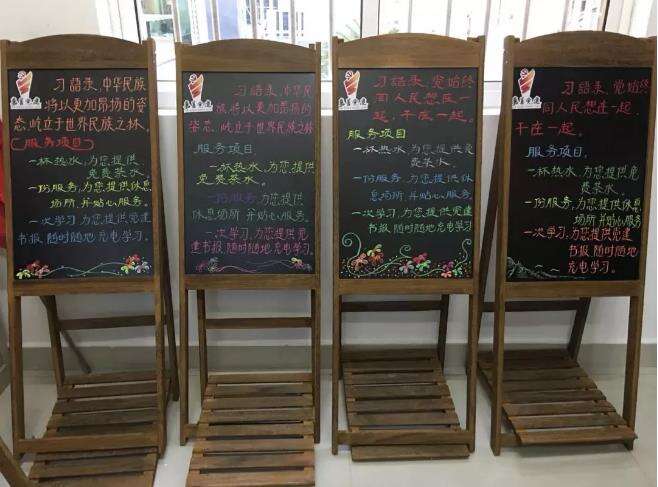 习語录，中华民族
将以更加昂扬的姿
态，屹立于世界民族之林。
服务项目
一杯热水，为您提供
免费茶水。
一份服务，为您提供休息
场所，并贴心服务。
一次学习，为您提供党建
书报，随时随地充电学习。
习語录，中华民
族将以更加昂扬的
姿态，屹立于世界民族之林
服务项目
一杯热水，为您提供
免费茶水。
一份服务，为您提供
休息场所，并贴心服务。
一次学习，为您提供党
建书报，随时随地充电学习。
习語录，党始终
同人民想在一
起，干在一起。
服务项目
一杯热水，为您提供免
费茶水。
一份服务，为您提供休
息场所，并贴心服务。
一次学习，为您提供党建
书报，随时随地充电学习。
习語录，党始终
同人民想在一起，
干在一起。
服务项目，
一杯热水，为您提供免
费茶水。
一份服务，为您提供休息
场所，并贴心服务
一次学习，为您提供党建
书报，随时随地
充电学习。